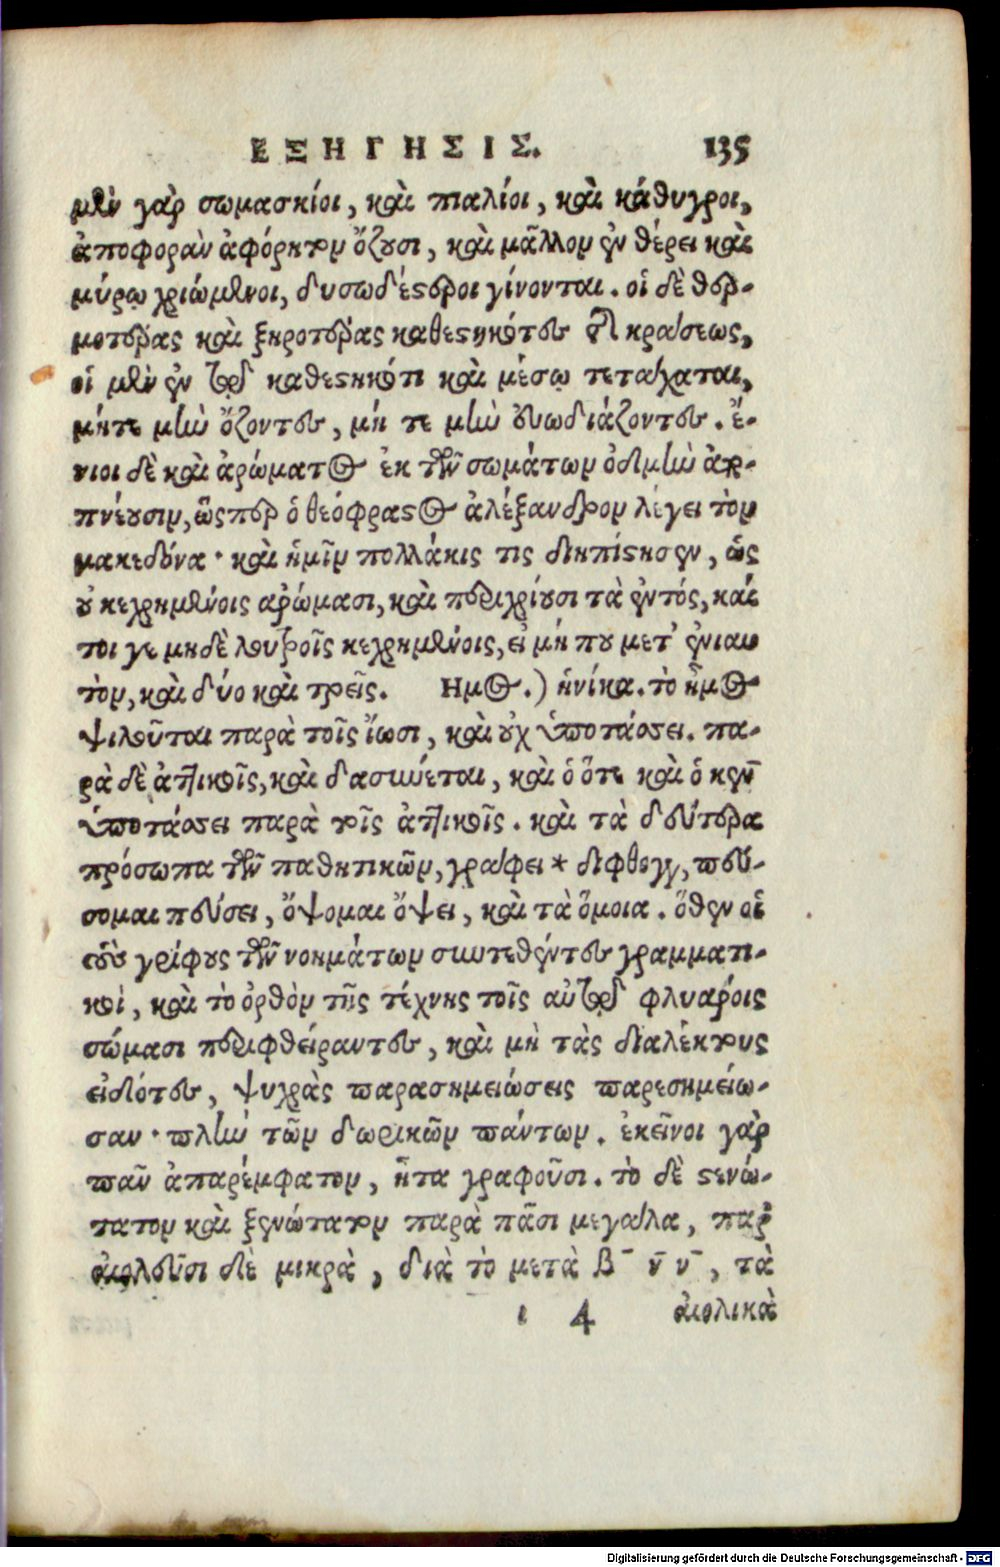 ΕΞΗΓΗΣΙΣ. 135
μὲν γὰρ σωμασκίοι, καὶ πιαλίοι, καὶ κάθυγροι,
ἀποφορὰν ἀφόρητον ὄζουσι, καὶ μᾶλλον ἐν θέρει καὶ
μύρῳ χριώμενοι, δυσωδέστεροι γίνονται. οἱ δὲ θερ-
μοτέρας καὶ ξηροτέρας καθεστηκότες τῆς κράσεως,
οἱ μὲν ἐν τῷ καθεστηκότι καὶ μέσῳ τετάχαται,
μήτε μὴν ὄζοντες, μή τε μὴν εὐωδιάζοντες. ἔ-
νιοι δὲ καὶ ἀρώματος ἐκ τῶν σωμάτων ὀδμὴν ἀπο-
πνέουσιν, ὥσπερ ὁ θεόφραστος ἀλέξανδρον λέγει τὸν
μακεδόνα· καὶ ἡμῖν πολλάκις τις διηπίστησεν, ὡς
οὐ κεχρημένοις αρώμασι, καὶ περιχρίουσι τὰ ἐντός, καί
τοι γε μηδὲ λουτροῖς κεχρημένοις, εἰ μή που μετ' ἐνιαυ
τὸν, καὶ δύο καὶ τρεῖς. Ημος.) ἡνίκα. τὸ ἦμος
ψιλοῦται παρὰ τοῖς ἴωσι, καὶ οὐχ ὑποτάσσει. πα-
ρὰ δὲ ἀττικοῖς, καὶ δασύνεται, καὶ ὁ ὅτε καὶ ὁ κεν
ὑποτάσσει παρὰ τοῖς ἀττικοῖς. καὶ τὰ δεύτερα
πρόσωπα τῶν παθητικῶν, γράφει * διφθογγ, πεύ-
σομαι πεύσει, ὄψομαι ὄψει, καὶ τὰ ὅμοια. ὅθεν οἱ
τοὺς γρίφους τῶν νοημάτων συντεθέντες γραμματι-
κοὶ, καὶ τὸ ὀρθὸν τῆς τέχνης τοῖς αὐτῶν φλυάροις
σώμασι περιφθείραντες, καὶ μὴ τὰς διαλέκτους
εἰδότες, ψυχρὰς παρασημειώσεις παρεσημείω-
σαν· πλὴν τῶν δωρικῶν πάντων. ἐκεῖνοι γὰρ
πᾶν ἀπαρέμφατον, ἦτα γραφοῦσι. τὸ δὲ στενώ-
τατον καὶ ξενώτατον παρὰ πᾶσι μεγάλα, παρ
αἰολεῦσι δὲ μικρὰ, διὰ τὸ μετὰ β̄ ν̄ν̄, τὰ
ι 4 αἰολικὰ
Digitalisierung gefördert durch die Deutsche Forschungsgemeinschaft - DFG